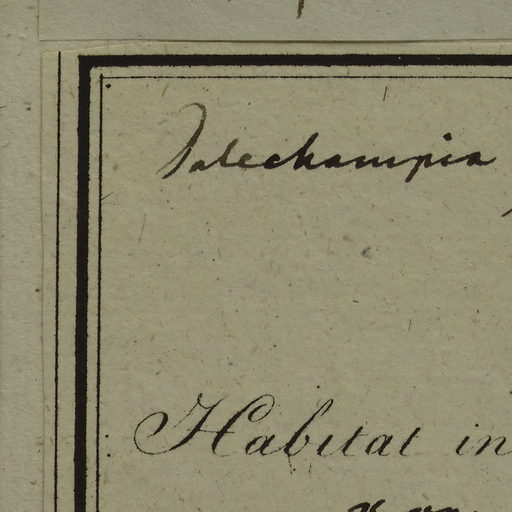 Dalechampia
Habitat in